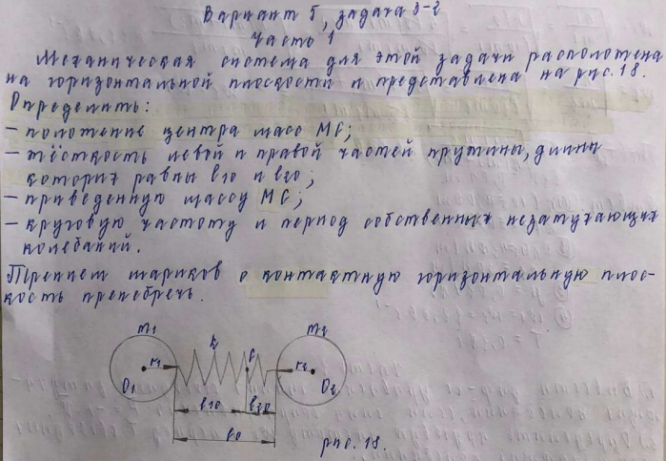 Вариант 5, задача 3-2
Часть 1
Механическая система для этой задачи расположена
на горизонтальной плоскости и представлена на рис. 18.
Определить:
– положение центра масс МС;
– жёсткость левой и правой частей пружины, длины
которих равны l10 и l20;
– приведенную массу МС;
– круговую частоту и период собственных незатухающих
колебаний.
Трением шариков о контактную горизонтальную плос-
кость пренебречь.
m1 k C m2
r1 r2
O1 O2
l10 l20
l0
рис. 18.